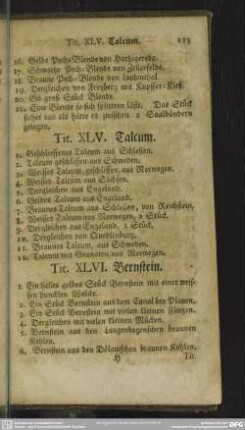 Tit. XLV. Talcum. 113
16. Gelbe Pech-Blende von
17. Schwartze Pech-Blende von Zellerfelde.
18. Braune Pech-Blende von Lautenthal
19. Dergleichen von Freyberg mit Kupffer-Kieß.
20. Ein groß Stück Blende.
21. Eine Blende so sich splittern läßt. Das Stück
siehet aus als hätte es zwischen 2 Saalbändern
gelegen.
Tit. XLV. Talcum.
1. Geschliffenes Talcum aus Schlesien.
2. Talcum geschliffen aus Schweden.
3. Weisses Talcum, geschliffen, aus Norwegen.
4. Weisses Talcum aus Sachsen.
5. Dergleichen aus Engeland.
6. Gelbes Talcum aus Engeland.
7. Braunes Talcum aus Schlesien, von Reichstein,
8. Weisses Talcum aus Norwegen, 2 Stück.
9. Dergleichen aus Engeland, 1 Stück.
10. Dergleichen von Quedlinburg.
11. Braunes Talcum, aus Schweden.
12. Talcum mit Granaten aus Norwegen.
Tit. XLVI. Bernstein.
1. Ein helles gelbes Stück Bernstein mit einer weis-
sen duncklen Wolcke.
2. Ein Stück Bernstein aus dem Canal bey Plauen.
3. Ein Stück Bernstein mit vielen kleinen
4. Dergleichen mit vielen kleinen Mücken.
5. Bernstein aus den Langenbogenschen braunen
Kohlen.
6. Bernstein aus den Dölauischen braunen Kohlen,
H Tit.